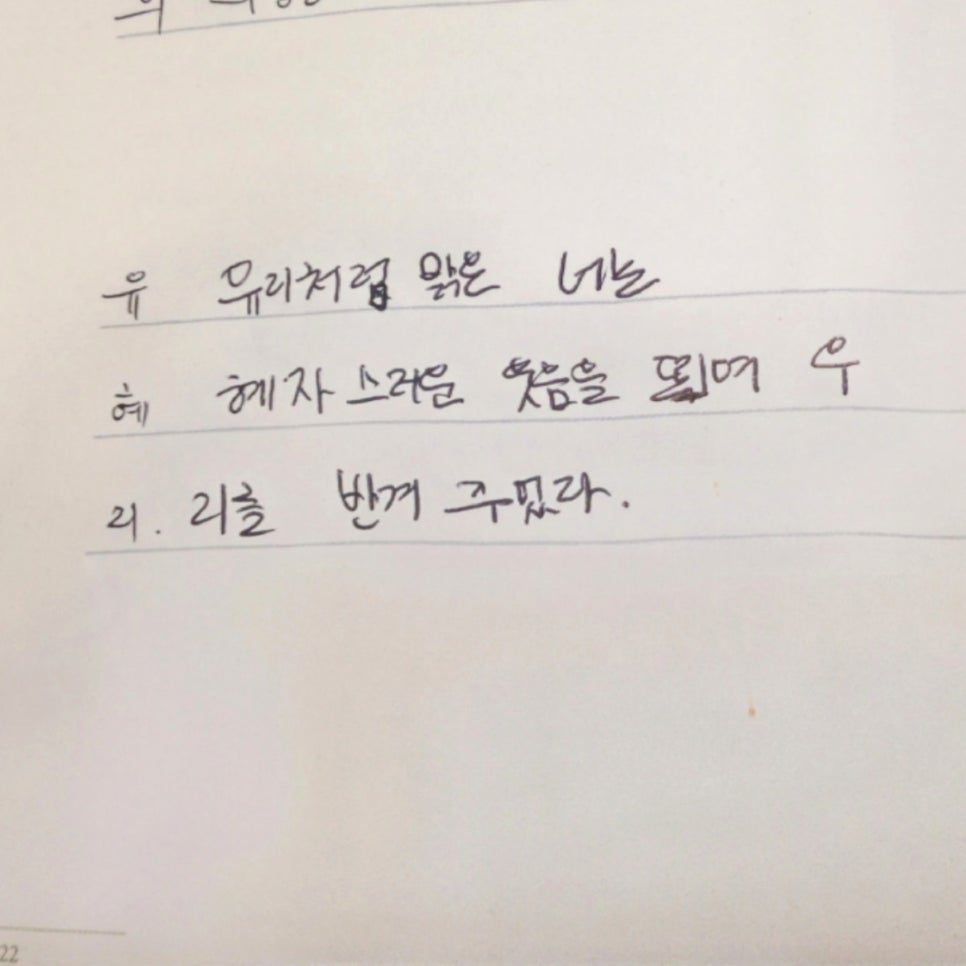 유 유리처럼 맑은 너는
혜 혜자스러운 웃음을 띄며 우
리. 리를 반겨 주었다.
22